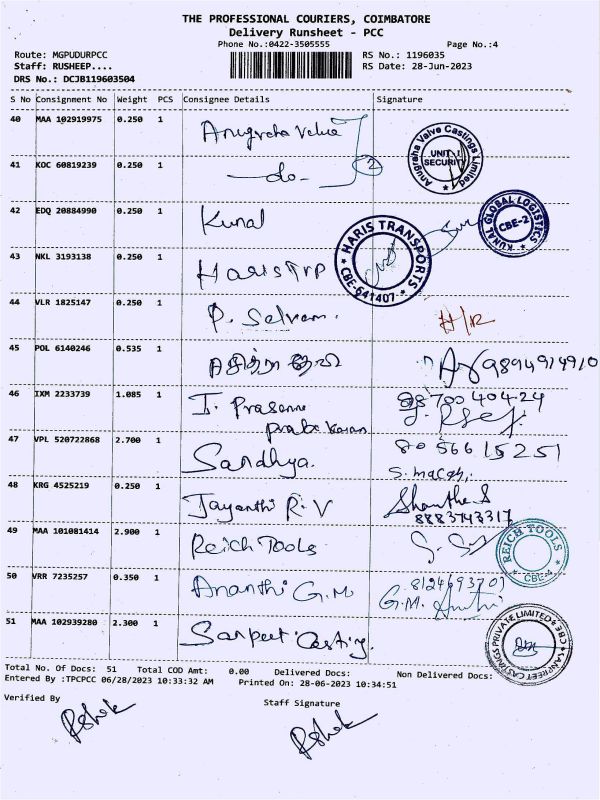 THE PROFESSIONAL COURIERS, COIMBATORE
Delivery Runsheet - PCC
Phone No.:0422-3505555 Page No.:4
Route: MGPUDURPCC RS No.: 1196035
Staff: RUSHEEP.... RS Date: 28-Jun-2023
DRS No.: DCJB119603504
S No Consignment No Weight PCS Consignee Details Signature
40 MAA 102919975 0.250 1 Anugraha Valve
Anugraha Valve Castings Limited UNIT I SECURITY
41 KOC 60819239 0.250 1 -do- 2
42 EDQ 20884990 0.250 1 Kunal
KUNAL GLOBAL LOGISTICS CBE-2
HARIS TRANSPORTS CBE-641407
43 NKL 3193138 0.250 1 Haris TVP
44 VLR 1825147 0.250 1 P. Selvam. H/R
45 POL 6140246 0.535 1 9894914910
46 IXM 2233739 1.085 1 I. Prasanna
prabakaran
47 VPL 520722868 2.700 1 Sandhya. 80 566 15251
48 KRG 4525219 0.250 1 Jayanthi R.V Shantha S
8883743317
49 MAA 101081414 2.900 1 Reich Tools
REICH TOOLS CBE-4
50 VRR 7235257 0.350 1 Ananthi G.M
G.M.
51 MAA 102939280 2.300 1 Sanpeet Casting.
SANPREET CASTINGS PRIVATE LIMITED CBE
Total No. Of Docs: 51 Total COD Amt: 0.00 Delivered Docs: Non Delivered Docs:
Entered By :TPCPCC 06/28/2023 10:33:32 AM Printed On: 28-06-2023 10:34:51
Verified By Staff Signature